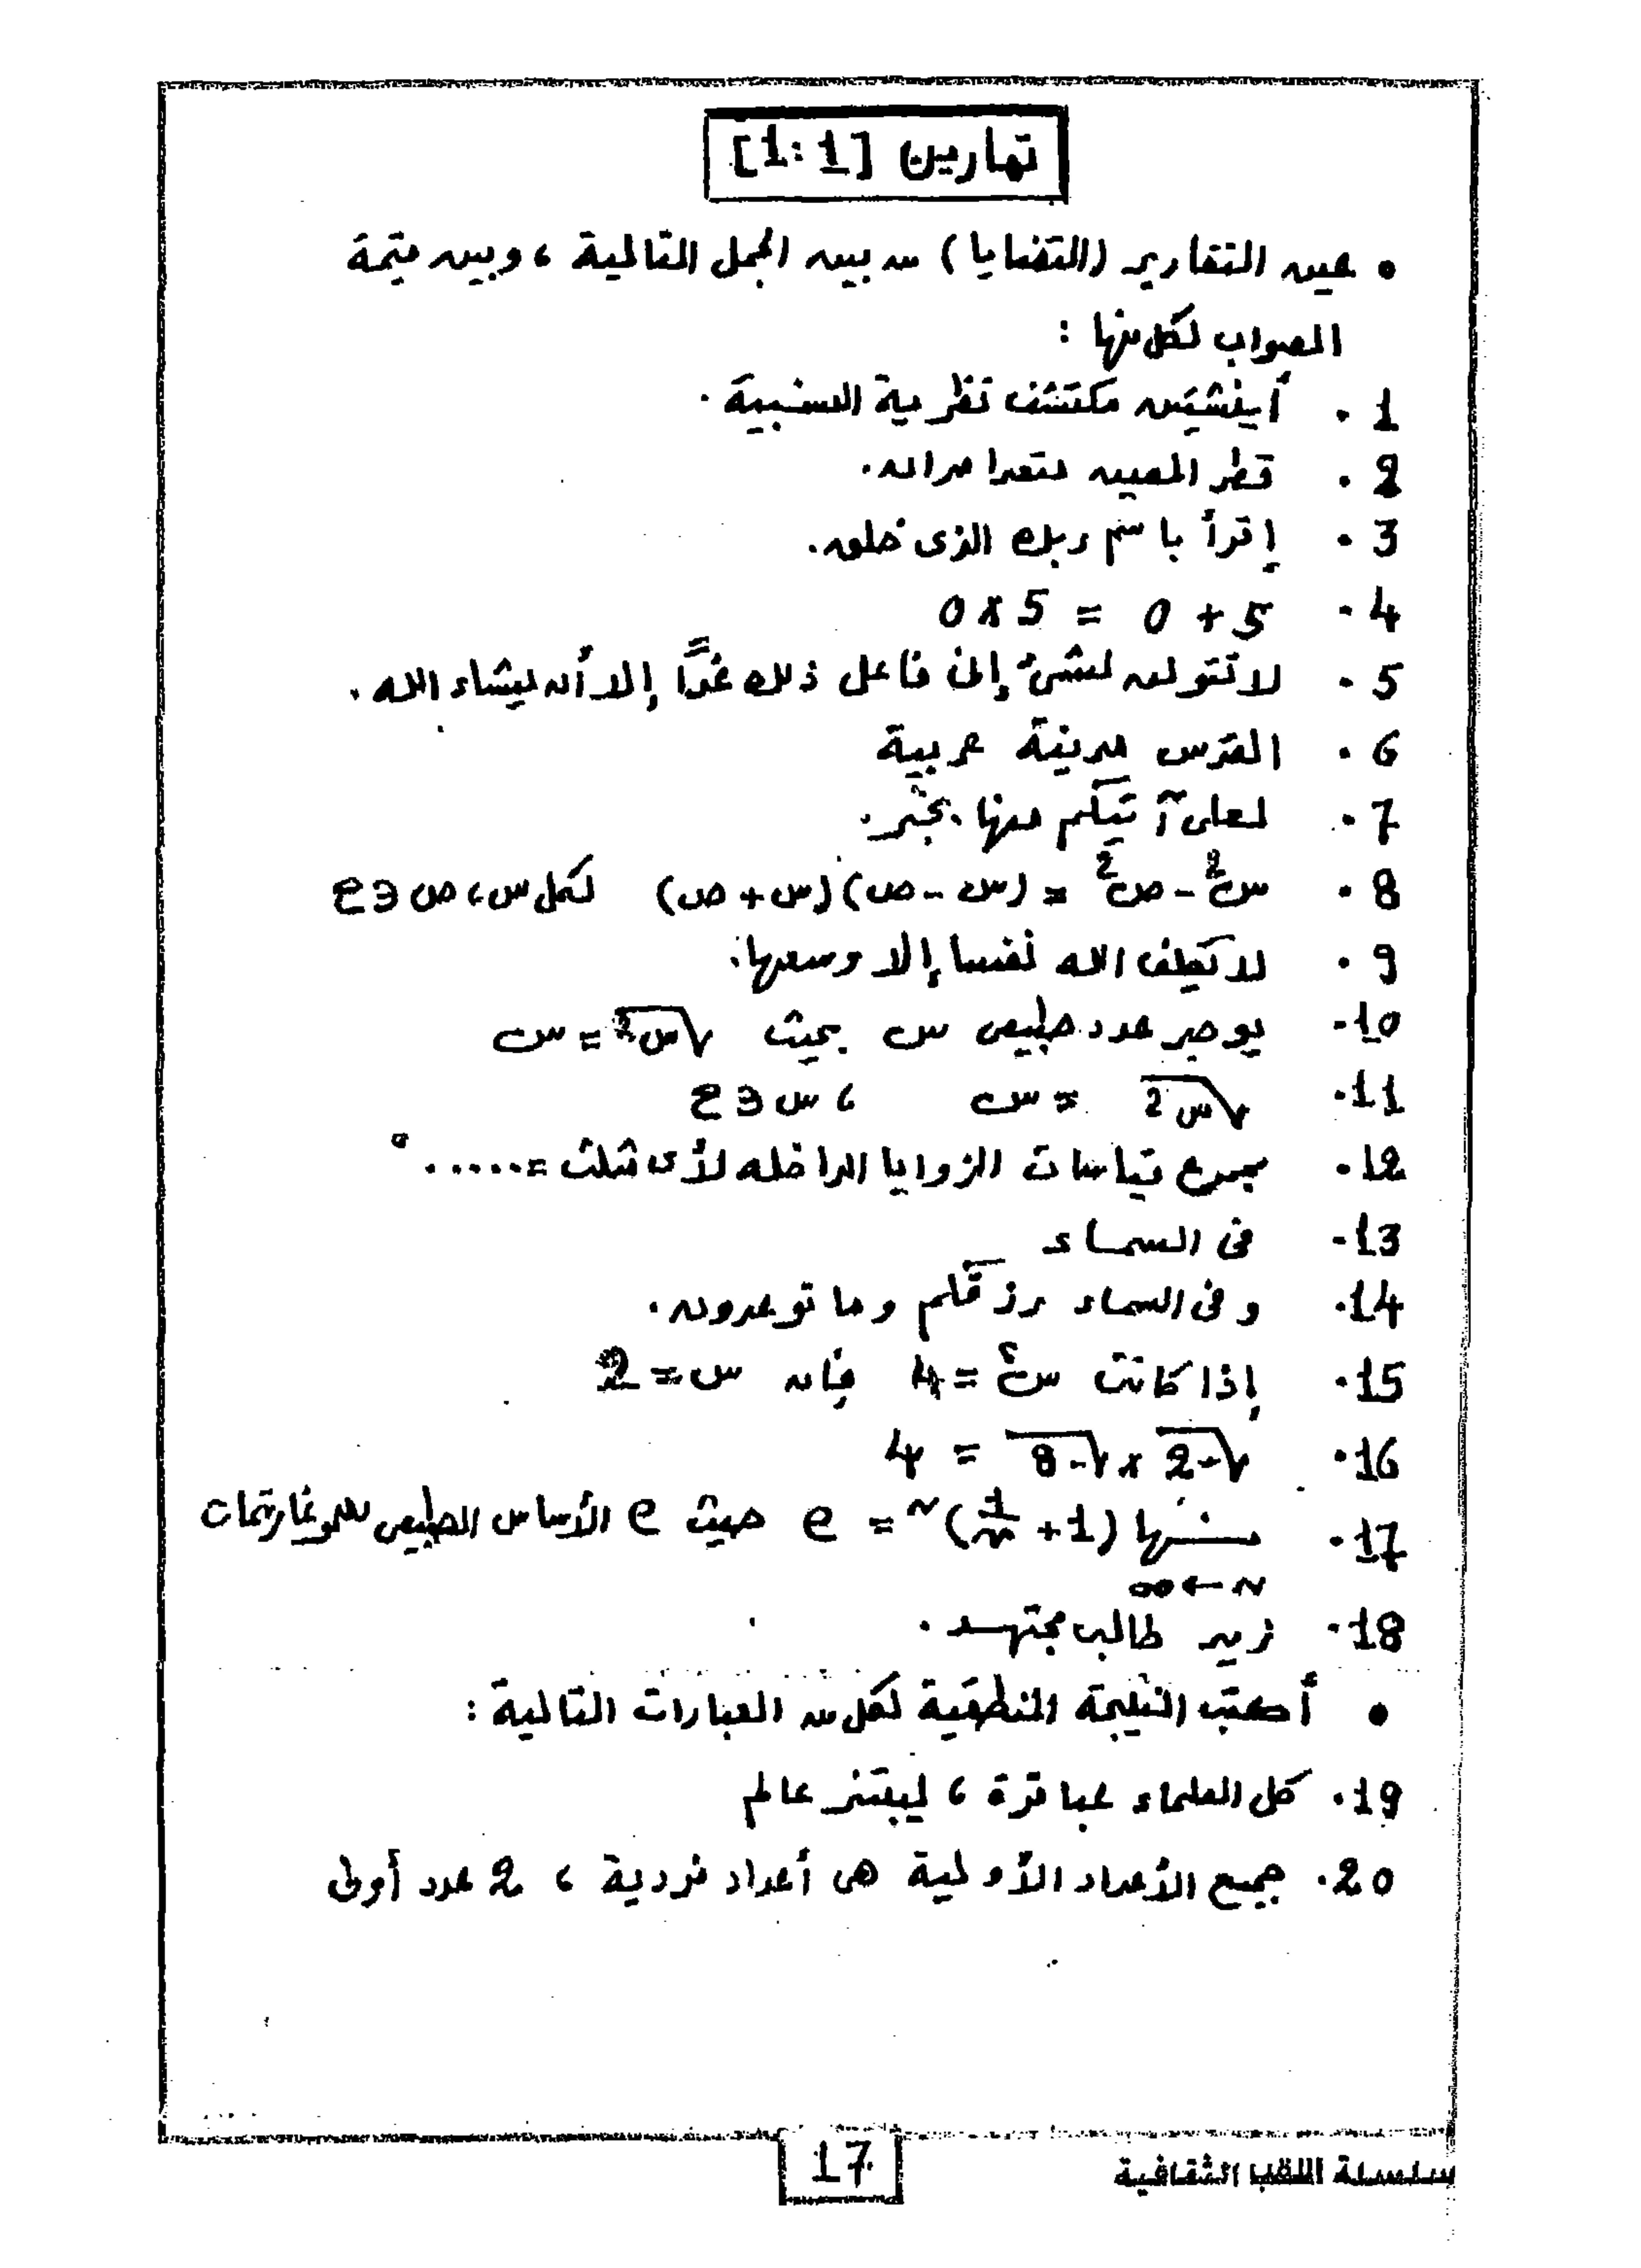 تمارين [1:1]
• عين التقارير (القضايا) من بين الجمل التالية ، وبين قيمة
الصواب لكل منها :
1. أينشتين مكتشف نظرية النسبية .
2. قطر المعين متعامدان.
3. إقرأ باسم ربك الذى خلق.
4. 5 + 0 = 5 × 0
5. لا تقولن لشئ إنى فاعل ذلك غدًا إلا أن يشاء الله .
6. القدس مدينة عربية
7. لعلى آتيكم منها بخبر.
8. س² - ص² = (س - ص)(س + ص) لكل س ، ص ∈ ح
9. لا يكلف الله نفسا إلا وسعها.
10. يوجد عدد طبيعى س بحيث √س² = س
11. √س² = س ، س ∈ ح
12. مجموع قياسات الزوايا الداخله لأى مثلث = ......°
13. فى السماء
14. وفى السماء رزقكم وما توعدون .
15. إذا كانت س² = 4 فإن س = 2
16. √-2 × √-8 = 4
17. نهـا (1 + 1/ن)ن = e حيث e الأساس الطبيعى للوغاريتمات
ن → ∞
18. زيد طالب مجتهد .
• أكتب النتيجة المنطقية لكل من العبارات التالية :
19. كل العلماء عباقرة ، ليبتنز عالم
20. جميع الأعداد الأولية هى أعداد فردية ، 2 عدد أولى
17
سلسلة اللقب الثقافية